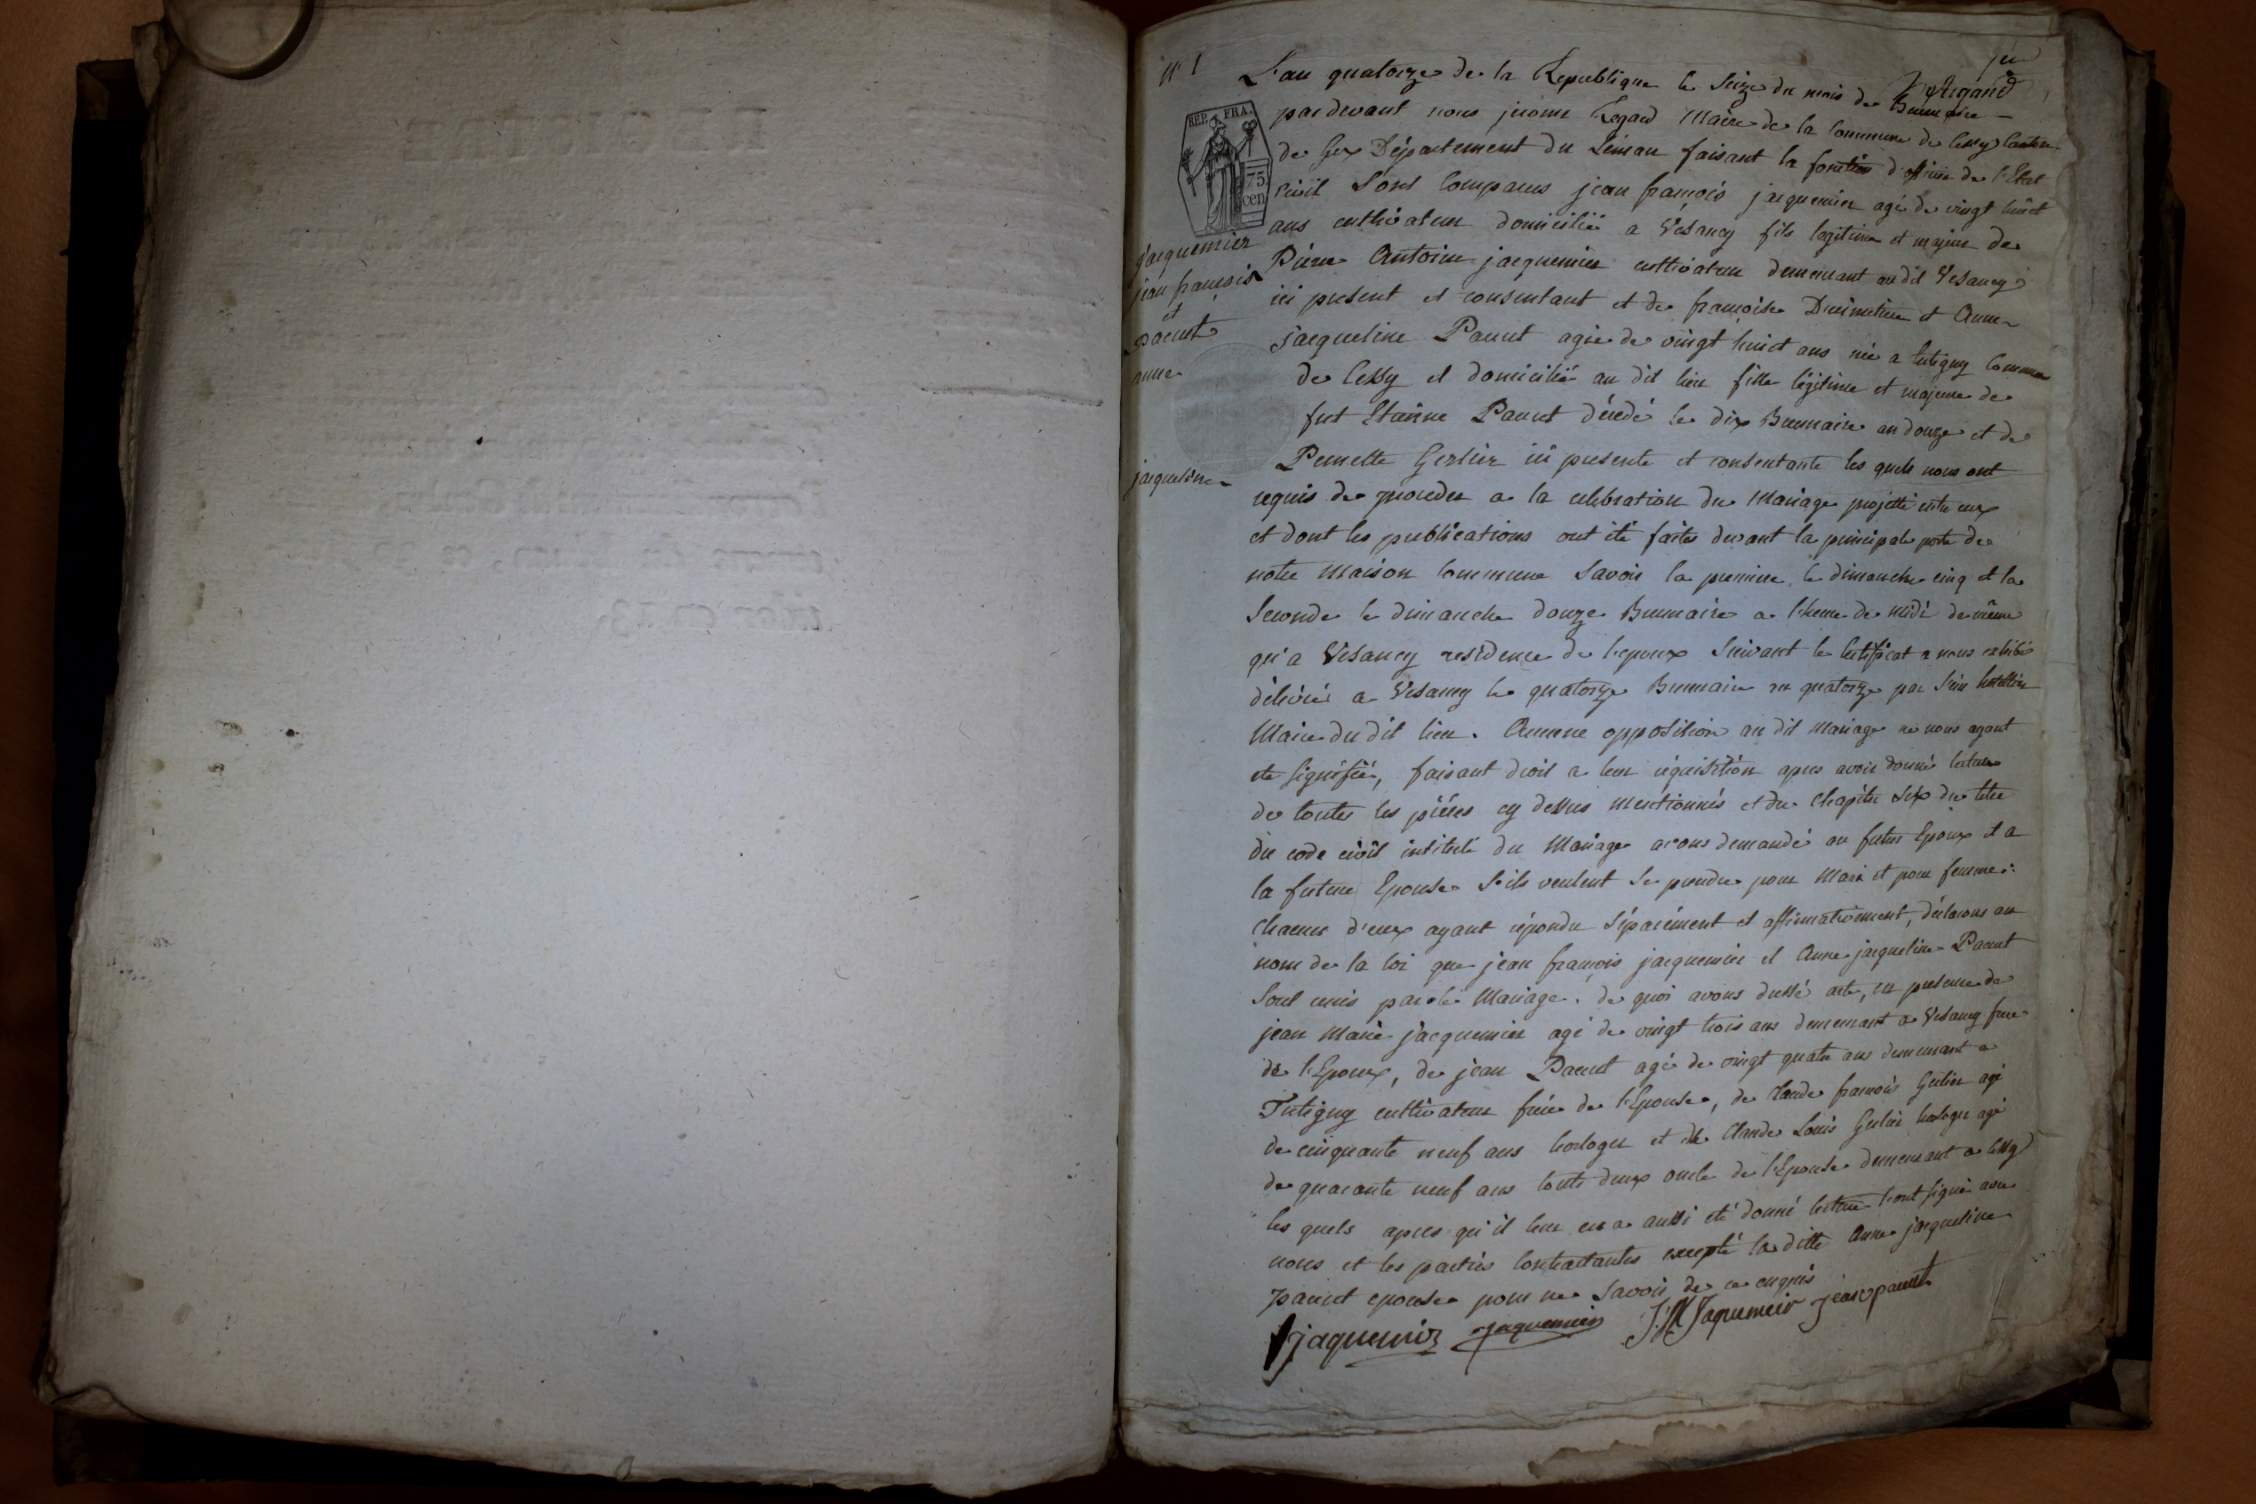 N° 1
L'an quatorze de la Republique le seize du mois de Brumaire
pardevant nous jerome Regard Maire de la Commune de Cessy Canton
de Gex Département du Léman faisant la fonction d'officier de l'Etat
civil sont comparus jean françois jacquemier agé de vingt huict
ans cultivateur domicilié a Vesancy fils legitime et majeur de
Pierre Antoine jacquemier cultivateur demeurant au dit Vesancy
ici present et consentant et de françoise et Anne
jacqueline Panut agée de vingt huict ans née a tutigny Commune
de Cessy et domicilié au dit lieu fille légitime et majeure de
fut Etaine Panut décédé le dix Brumaire an douze et de
Pernette Gerlier ici presente et consentante les quels nous ont
requis de proceder a la celebration du Mariage projetté entre eux
et dont les publications ont été faites devant la principale porte de
notre Maison Commune savoir la premiere le dimanche cinq et la
seconde le dimanche douze Brumaire a l'heure de midi de même
qu'a Vesancy residence de l'epoux suivant le Certificat a nous exhibé
délivré a Vesancy le quatorze Brumaire an quatorze par
Maire du dit lieu. Aucune opposition au dit Mariage ne nous ayant
eté signifié, faisant droit a leur réquisition apres avoir donné lecture
de toutes les piéces cy dessus mentionnés et du Chapitre six du titre
du code civil intitulé du Mariage avons demandé au futur Epoux et a
la future Epouse s'ils veulent se prendre pour Mari et pour femme:
Chacun d'eux ayant répondu séparément et affirmativement, déclarons au
nom de la loi que jean françois jacquemier et Anne jacqueline Panut
sont unis par le Mariage. de quoi avons dressé acte, en presence de
jean Marie jacquemier agé de vingt trois ans demeurant a Vesancy frere
de l'Epoux, de jean Panut agé de vingt quatre ans demeurant a
Tutigny cultivateur frére de l'Epouse, de Claude françois Gerlier agé
de cinquante neuf ans horloger et de Claude Louis Gerlier horloger agé
de quarante neuf ans touts deux oncle de l'Epouse demeurant a Cessy
les quels apres qu'il leur en a aussi été donné lecture l'ont signé avec
nous et les parties Contractantes excepté la ditte Anne jacqueline
panut epouse pour ne savoir de ce enquis
jaquemier jaquemier J. M Jaquemeir jean panut
REP. FRA.
75
cen
jacquemier
jean françois
et
panut
anne
jacqueline